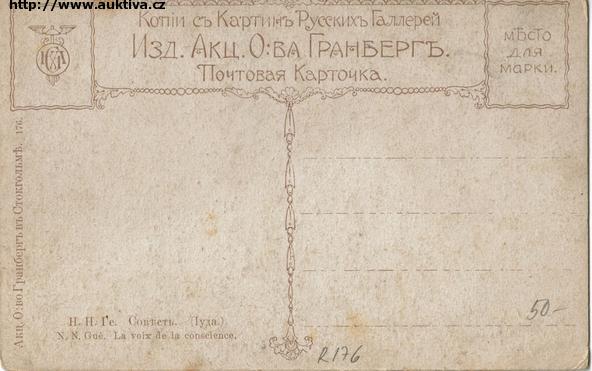 http://www.auktiva.cz
Копіи съ Картинъ Русскихъ Галлерей
Изд. Акц. О:ва Гранбергъ.
Почтовая Карточка.
МѢСТО
ДЛЯ
МАРКИ.
Акц. О:во Гранбергъ въ Стокгольмѣ. 176.
Н. Н. Ге. Совѣсть. (Іуда.)
N. N. Gué. La voix de la conscience.
R176
50.-